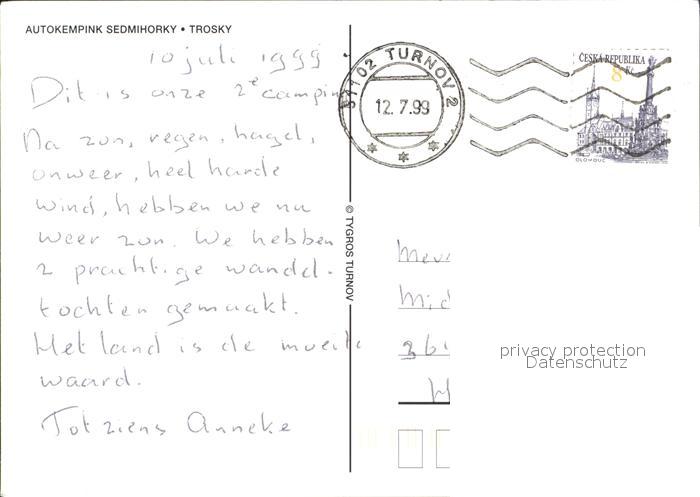 AUTOKEMPINK SEDMIHORKY • TROSKY
10 juli 1999
Dit is onze 2e camping
Na zon, regen, hagel,
onweer, heel harde
wind, hebben we nu
weer zon. We hebben
2 prachtige wandel-
tochten gemaakt.
Het land is de moeite
waard.
Tot ziens Anneke
© TYGROS TURNOV
511 02 TURNOV 2
12.7.99
ČESKÁ REPUBLIKA
8 Kč
OLOMOUC
Mev
Mid
361
privacy protection
Datenschutz